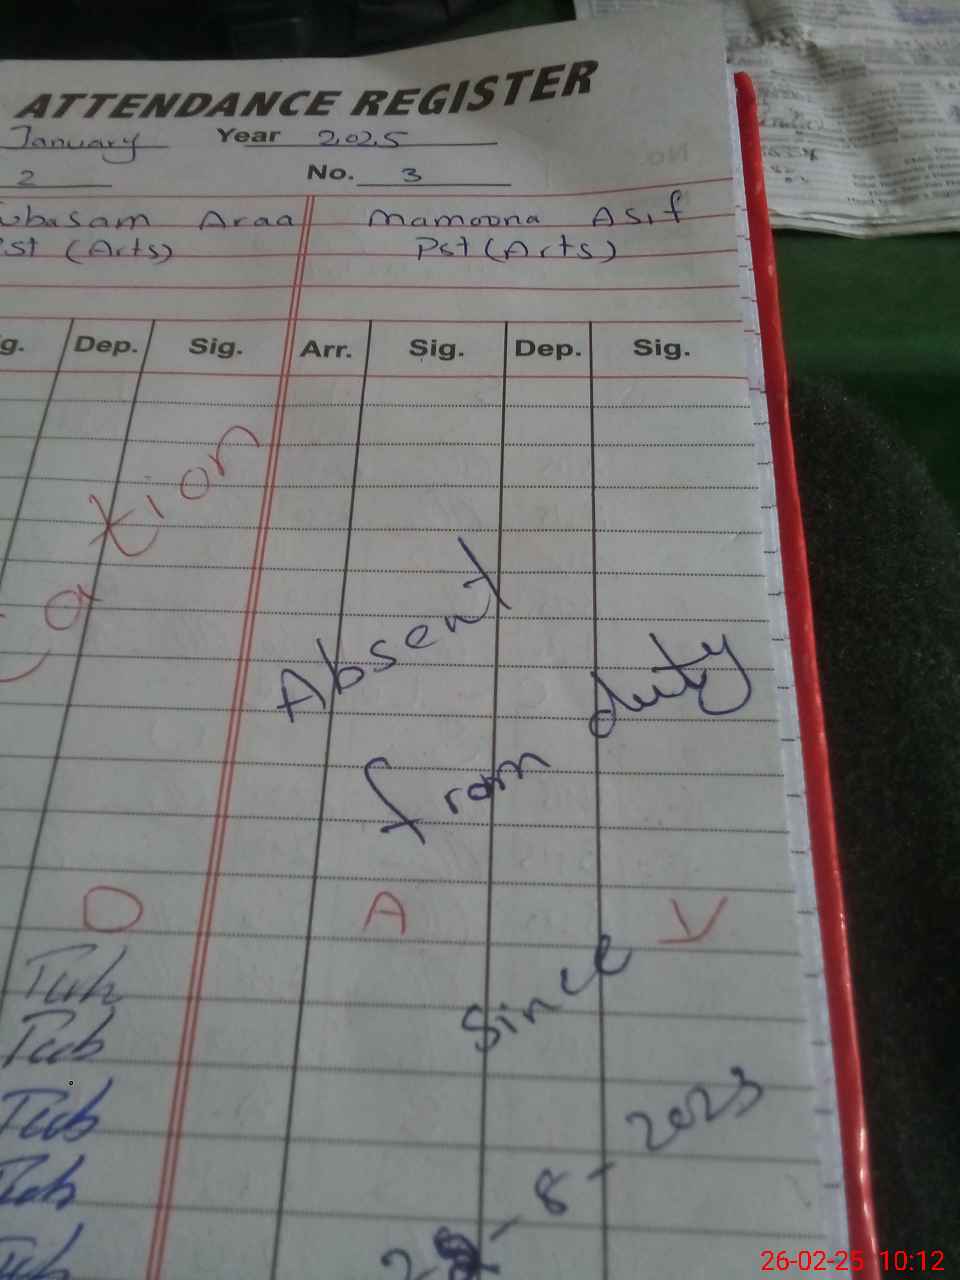 ATTENDANCE REGISTER
January Year 2025
2 No. 3
Araa Mamoona Asif
(Arts) Pst (Arts)
Dep. Sig. Arr. Sig. Dep. Sig.
Absent
from duty
D A Y
Tub
Tub
Tub
Tub
since
8 - 2023
26-02-25 10:12